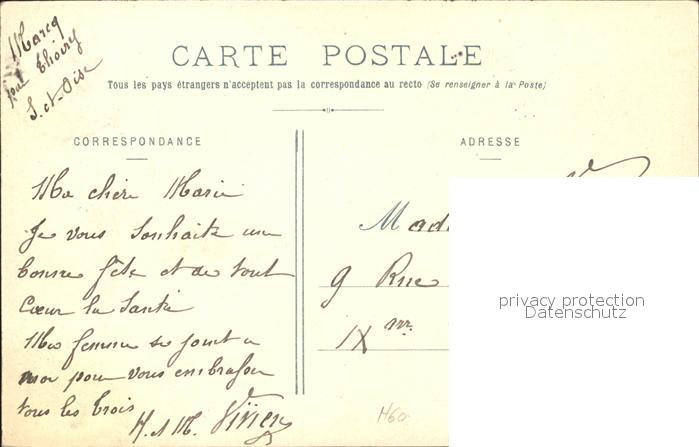 Marcq
par Thoiry
S. et Oise
CARTE POSTALE
Tous les pays étrangers n'acceptent pas la correspondance au recto (Se renseigner à la Poste)
CORRESPONDANCE
Ma chère Marie
Je vous Souhaite une
bonne fête et de tout
Cœur la Santé
Ma femme se joint a
moi pour vous embrasser
tous les trois
H. et M.
ADRESSE
Mad
9 Rue
IX me
privacy protection
Datenschutz
H60